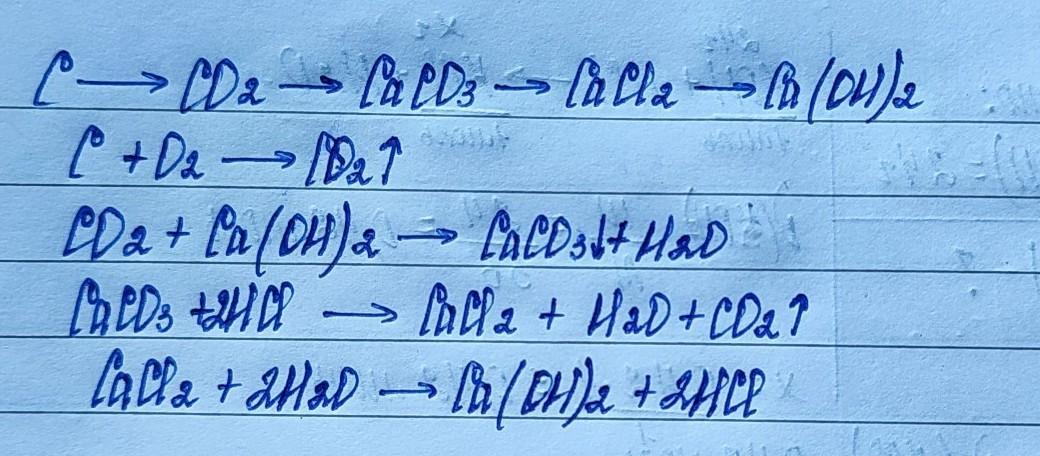 C → CO2 → CaCO3 → CaCl2 → Ca(OH)2
C + O2 → CO2↑
CO2 + Ca(OH)2 → CaCO3↓ + H2O
CaCO3 + 2HCl → CaCl2 + H2O + CO2↑
CaCl2 + 2H2O → Ca(OH)2 + 2HCl